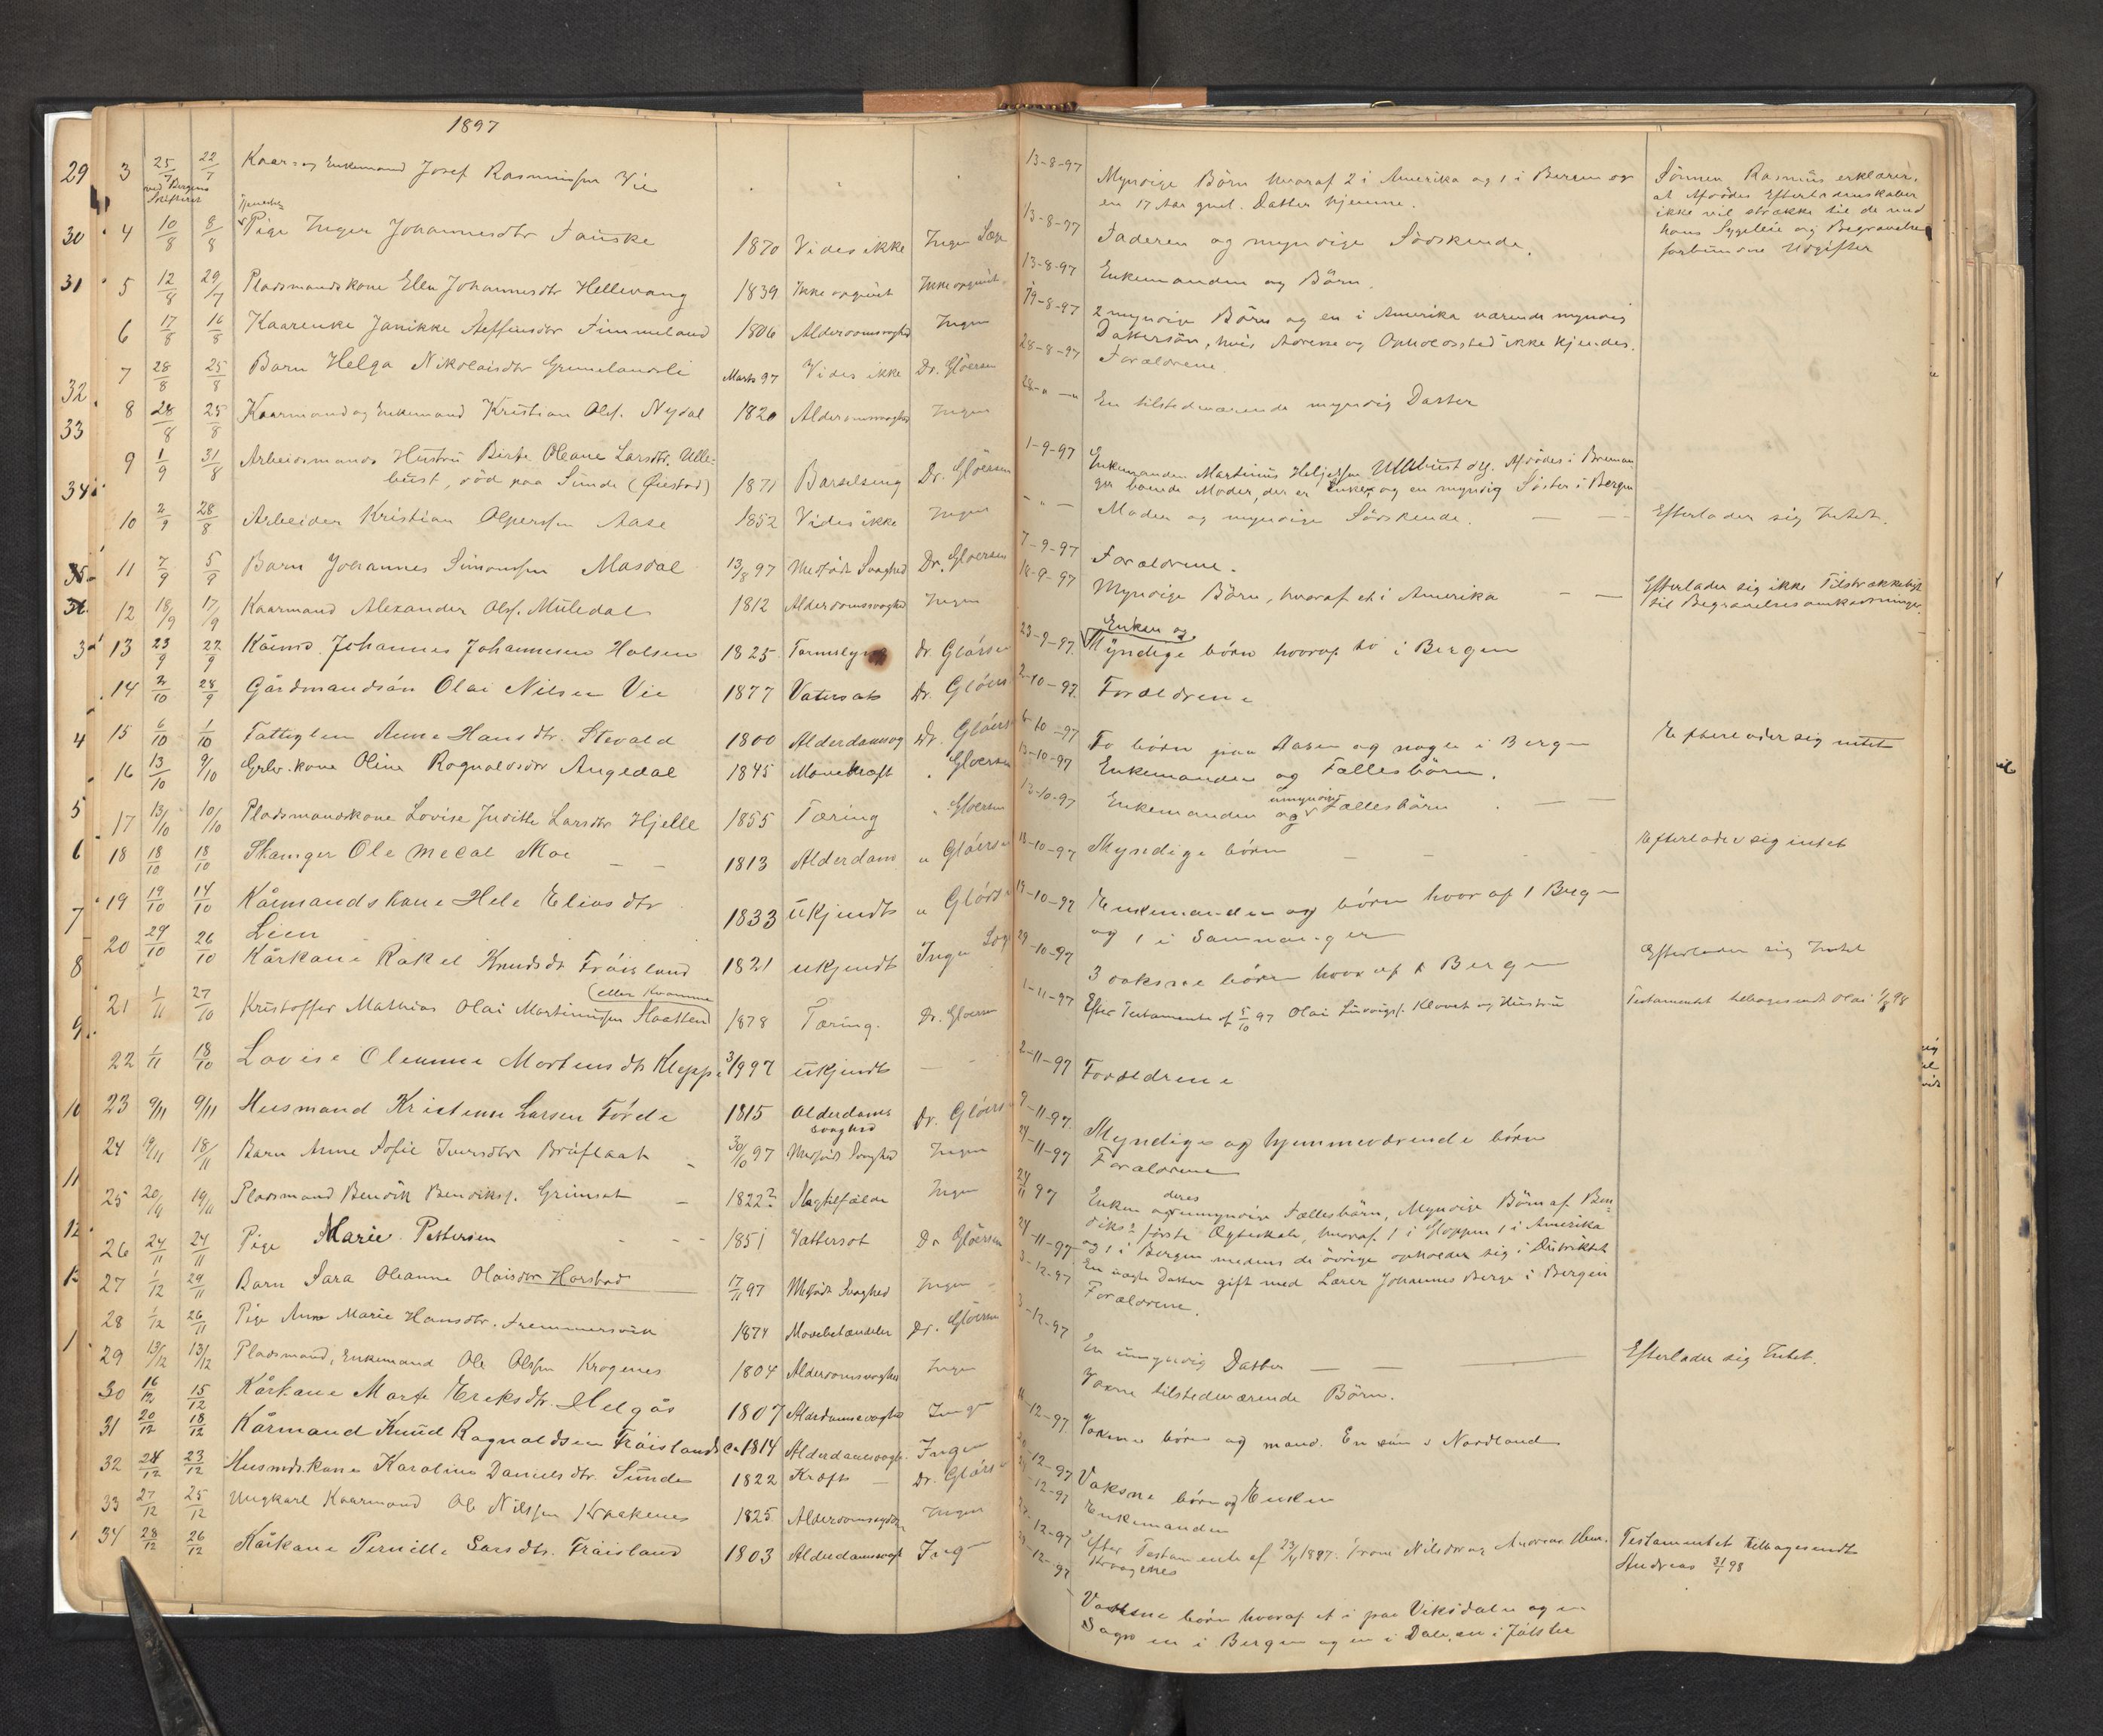 1897
29 3 25/7 22/7 Kaar- og Enkemand Josef Rasmussen Vie
ved Bergens
tjenende
30 4 10/8 8/8 Pige Inger Johannesdtr Fauske 1870 Vides ikke Ingen Læge
31 5 12/8 29/7 Pladsmandskone Elen Johannesdtr Hellevang 1839 Ikke opgivet Ikke opgivet
6 17/8 16/8 Kaarenke Janikke Fimmeland 1806 Alderdomssvaghed Ingen
7 28/8 25/8 Barn Helga Nikolaisdtr Marts 97 Vides ikke Dr. Gløersen
32
8 28/8 25/8 Kaarmand og Enkemand Kristian Ols. Nydal 1820 Alderdomssvaghed Ingen
33
9 1/9 31/8 Arbeidsmands Hustru Birte Oleane Larsdtr. Ulle-
bust, død paa Sunde (Øiestad) 1871 Barselseng Dr. Gløersen
34
10 2/9 28/8 Arbeider Kristian Aase 1852 Vides ikke Ingen
35 11 7/9 5/9 Barn Johannes Simonssen Masdal 13/8 97 Medfødt Svaghed Dr. Gloersen
36 12 18/9 17/9 Kaarmand Alexander Ols. Muledal 1812 Alderdomssvaghed Ingen
3 13 23/9 22/9 Kåimd. Johannes Johannesen Halsen 1825 Dr Glørsen
14 2/10 28/9 Gårdmandsøn Olai Nilsen Vie 1877 Vatersot Dr. Gløers
4 15 6/10 1/10 Fattiglem Anne Hansdtr. Stevald 1800 Dr. Gløers
16 13/10 9/10 Grbr. kone Oline Ragnaldsdtr Angedal 1845 Mavekræft " Gloersen
5 17 13/10 10/10 Pladsmandskone Lovise Judithe Larsdtr Hjelle 1855 Tæring " Gloersen
6 18 18/10 18/10 Ole Moe 1813 Alderdom " Gløersen
7 19 19/10 14/10 Kårmandskone Hele Eliasdtr 1833 ukjendt " Glørs
Lien
8 20 29/10 26/10 Kårkone Rakel Knudsdt Frøisland 1821 ukjendt Ingen Læge
(eller Kvamme
9 21 1/11 27/10 Kristoffer Mathias Olai Martinussen Haatten 1878 Tæring. Dr. Gloersen
22 1/11 18/10 Lovise Oleanne Mortensdtr Kleppe 3/9 97 ukjendt —
10 23 9/11 9/11 Husmand Kristenn Larsen Førde 1815 Alderdoms
svaghed Dr. Gløers
24 19/11 18/11 Barn Anne Sofie Iversdtr Bruflaat 30/10 97 Medfødt Svaghed Ingen
11
25 20/11 19/11 Pladsmand Bendik Bendiks. Grimset — 1822? Ingen
12
26 24/11 24/11 Pige Marie Pettersen 1851 Vattersot Dr Gløersen
13 27 1/12 29/11 Barn Sara Oleanna Olaisdtr Harstad 17/11 97 Medfødt Svaghed Ingen
28 1/12 26/11 Pige Anne Marie Hansdtr. 1874 Mavebetændelse Dr. Gløersen
1 29 13/12 13/12 Pladsmand, Enkemand Ole Olssen Krogenes 1804 Alderdomssvaghed Ingen
30 16/12 15/12 Kårkone Marte Ereksdtr. Helgås 1807 Alderdomssvaghed Ingen
31 20/12 18/12 Kårmand Knud Ragnaldsen Frøisland Ca 1814 Alderdomssvagh. Ingen
32 24/12 23/12 Husmdskone Karoline Danielsdtr. Sunde 1822 Kræft — Dr. Glørs
33 27/12 25/12 Ungkarl Kaarmand Ole Nilssen Kraakenes 1825 Ingen
1 34 28/12 26/12 Kårkone Pernille Larsdtr. Frøisland 1803 Alderdomssvagh Ing
13-8-97 Myndige Børn hvoraf 2 i Amerika og 1 i Bergen og
en 17 Aar gml. Datter hjemme.
Sønnen Rasmus erklærer,
at Afdødes Efterladenskaber
ikke vil strække til de med
hans Sygeleie og Begravelse
forbundne Udgifter
13-8-97 Faderen og myndige Sødskende.
13-8-97 Enkemanden og Børn.
19-8-97 2 myndige Børn og en i Amerika værende myndig
Dattersøn, hvis Adresse og Opholdssted ikke kjendes.
28-8-97 Forældrene
28-"-" En tilstedeværende myndig Datter
1-9-97 Enkemanden Martinus Heljessen Ullebust og Afdødes i Breman-
ger boende Moder, der er Enke, og en myndig Søster i Bergen
- " - Moder og myndige Sødskende. — — Efterlader sig Intet.
7-9-97 Forældrene.
18-9-97 Myndige Børn, hvoraf et i Amerika — — Efterlader sig ikke Tilstrækkeligt
til Begravelsesomkostninger.
Enken og
23-9-97. Myndige børn hvoraf to i Bergen
2-10-97. Forældrene
6-10-97 To børn paa Aasen og nogle i Bergen Efterlader sig intet
13-10-97 Enkemanden og Fællesbørn.
umyndige
13-10-97 Enkemanden og Fællesbørn . — —
18-10-97 Myndige børn — — Efterlader sig intet
19-10-97 Enkemanden og børn hvoraf 1 Bergen
og 1 i Samnanger
29-10-97 3 voksne børn hvoraf 1 Bergen Efterlader sig Intet
1-11-97 Efter Testamente af 5/10 97 Olai Klovet og Hustru Testamentet tilbagesendt Olai 98
2-11-97 Forældrene
9-11-97. Myndige og hjemmeværende børn
24-11-97 Forældrene
deres
24/11 97 Enken og umyndige Fællesbørn, Myndige Børn af Ben-
diks første Ægteskab, hvoraf 1 i Gloppen 1 i Amerika
og 1 i Bergen medens de øvrige opholder sig i Distriktet
24-11-97 En Datter gift med Lærer Johannes Berge i Bergen
3-12-97 Forældrene.
3-12-97
En umyndig Datter — — Efterlader sig Intet.
Voxne tilstedeværende Børn.
-12-97. Voksne børn og mand. En søn i Nordland
-12-97 Voksne børn og Enken
-12-97 Enkemanden
-12-97 Efter Testamente af 1897. Nilsdtr og Andreas
Kraagenes
Testamentet tilbagesendt
Andreas 31/1 98
-12-97
Voksne børn hvoraf et i paa Viksdalen og en
Sogn en i Bergen og en i Dale, en i Jølster